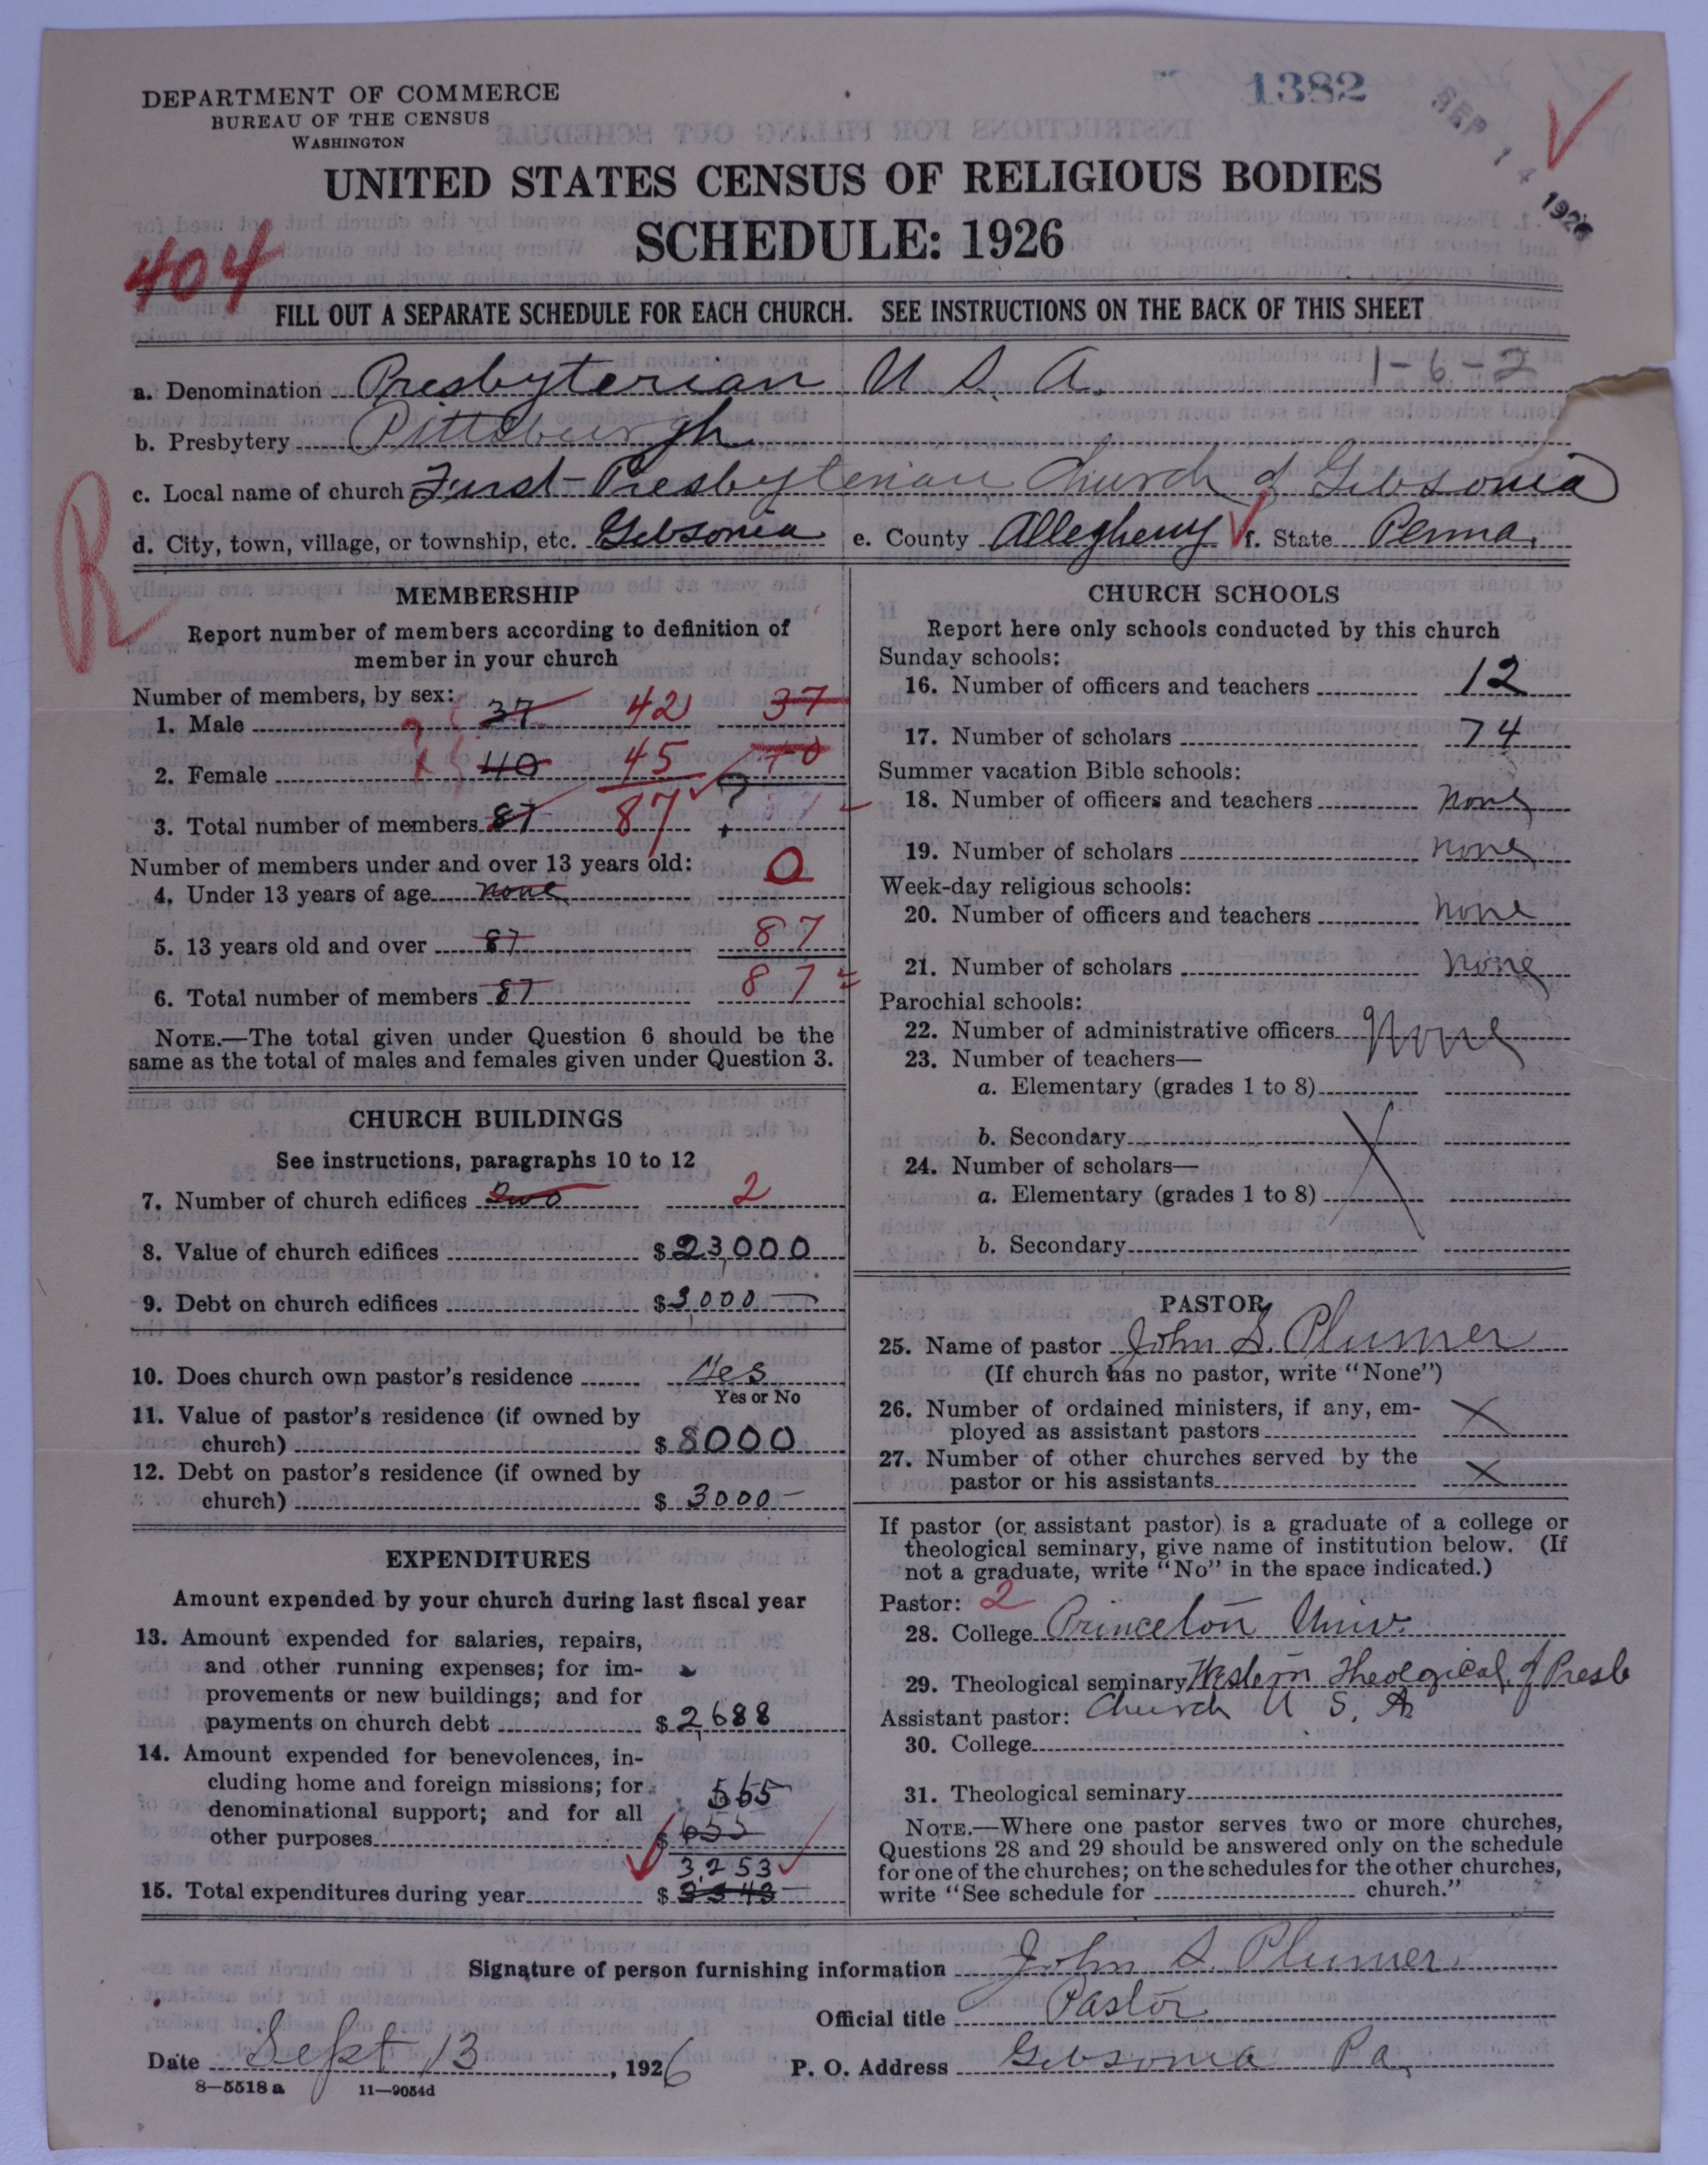 DEPARTMENT OF COMMERCE
BUREAU OF THE CENSUS
WASHINGTON
1382
SEP 14 1926
UNITED STATES CENSUS OF RELIGIOUS BODIES
SCHEDULE: 1926
404
FILL OUT A SEPARATE SCHEDULE FOR EACH CHURCH. SEE INSTRUCTIONS ON THE BACK OF THIS SHEET
1-6-2
a. Denomination Presbyterian U. S. A.
b. Presbytery Pittsburgh
c. Local name of church First Presbyterian Church of Gibsonia
d. City, town, village, or township, etc. Gibsonia e. County Allegheny f. State Penna.
R
MEMBERSHIP
Report number of members according to definition of
member in your church
Number of members, by sex:
1. Male 37 42 37
2. Female 40 45 40
3. Total number of members 87 87
Number of members under and over 13 years old:
4. Under 13 years of age none 0
5. 13 years old and over 87 87
6. Total number of members 87 87
NOTE.—The total given under Question 6 should be the
same as the total of males and females given under Question 3.
CHURCH BUILDINGS
See instructions, paragraphs 10 to 12
7. Number of church edifices two 2
8. Value of church edifices $23,000
9. Debt on church edifices $3,000 —
10. Does church own pastor's residence Yes
Yes or No
11. Value of pastor's residence (if owned by
church) $ 8000
12. Debt on pastor's residence (if owned by
church) $ 3000 —
EXPENDITURES
Amount expended by your church during last fiscal year
13. Amount expended for salaries, repairs,
and other running expenses; for im-
provements or new buildings; and for
payments on church debt $ 2,688
14. Amount expended for benevolences, in-
cluding home and foreign missions; for
denominational support; and for all
other purposes $ 655 565
3,253
15. Total expenditures during year $ 3343
CHURCH SCHOOLS
Report here only schools conducted by this church
Sunday schools:
16. Number of officers and teachers 12
17. Number of scholars 74
Summer vacation Bible schools:
18. Number of officers and teachers none
19. Number of scholars none
Week-day religious schools:
20. Number of officers and teachers none
21. Number of scholars none
Parochial schools:
22. Number of administrative officers None
23. Number of teachers—
a. Elementary (grades 1 to 8)
b. Secondary
24. Number of scholars—
a. Elementary (grades 1 to 8)
b. Secondary
PASTOR
25. Name of pastor John S. Plumer
(If church has no pastor, write "None")
26. Number of ordained ministers, if any, em-
ployed as assistant pastors X
27. Number of other churches served by the
pastor or his assistants X
If pastor (or assistant pastor) is a graduate of a college or
theological seminary, give name of institution below. (If
not a graduate, write "No" in the space indicated.)
Pastor: 2
28. College Princeton Univ.
29. Theological seminary Western Theological of Presb
Church U S. A
Assistant pastor:
30. College
31. Theological seminary
NOTE.—Where one pastor serves two or more churches,
Questions 28 and 29 should be answered only on the schedule
for one of the churches; on the schedules for the other churches,
write "See schedule for church."
Signature of person furnishing information John S. Plumer
Official title Pastor
Date Sept 13, 1926 P. O. Address Gibsonia Pa.
8—5518 a 11—9054d